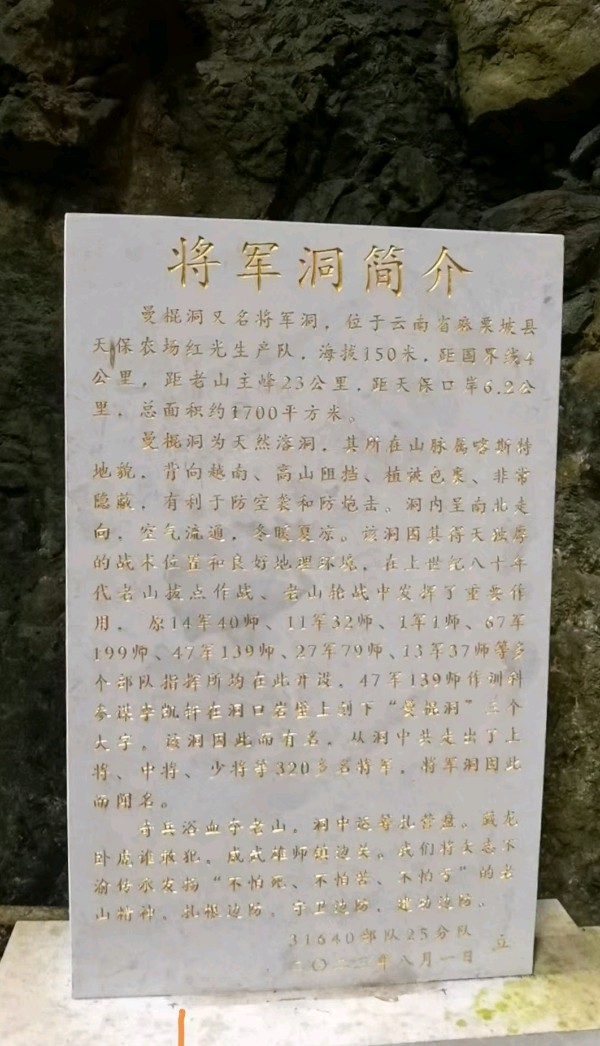 将军洞简介
曼棍洞又名将军洞，位于云南省麻栗坡县
天保农场红光生产队，海拔150米，距国界线4
公里，距老山主峰23公里，距天保口岸6.2公
里，总面积约1700平方米。
曼棍洞为天然溶洞，其所在山脉属喀斯特
地貌，背向越南、高山阻挡、植被包裹、非常
隐蔽，有利于防空袭和防炮击。洞内呈南北走
向，空气流通，冬暖夏凉。该洞因其得天独厚
的战术位置和良好地理环境，在上世纪八十年
代老山拔点作战、老山轮战中发挥了重要作
用。原14军40师、11军32师、1军1师、67军
199师、47军139师、27军79师、13军37师等多
个部队指挥所均在此开设。47军139师作训科
参谋李凯轩在洞口岩壁上刻下“曼棍洞”三个
大字，该洞因此而有名。从洞中共走出了上
将、中将、少将等320多名将军，将军洞因此
而闻名。
守兵浴血守老山，洞中运筹扎营盘。藏龙
卧虎谁敢犯，威武雄师镇边关。我们将矢志不
渝传承发扬“不怕死、不怕苦、不怕亏”的老
山精神，扎根边防，守卫边防，建功边防。
31640部队25分队 立
二〇二三年八月一日